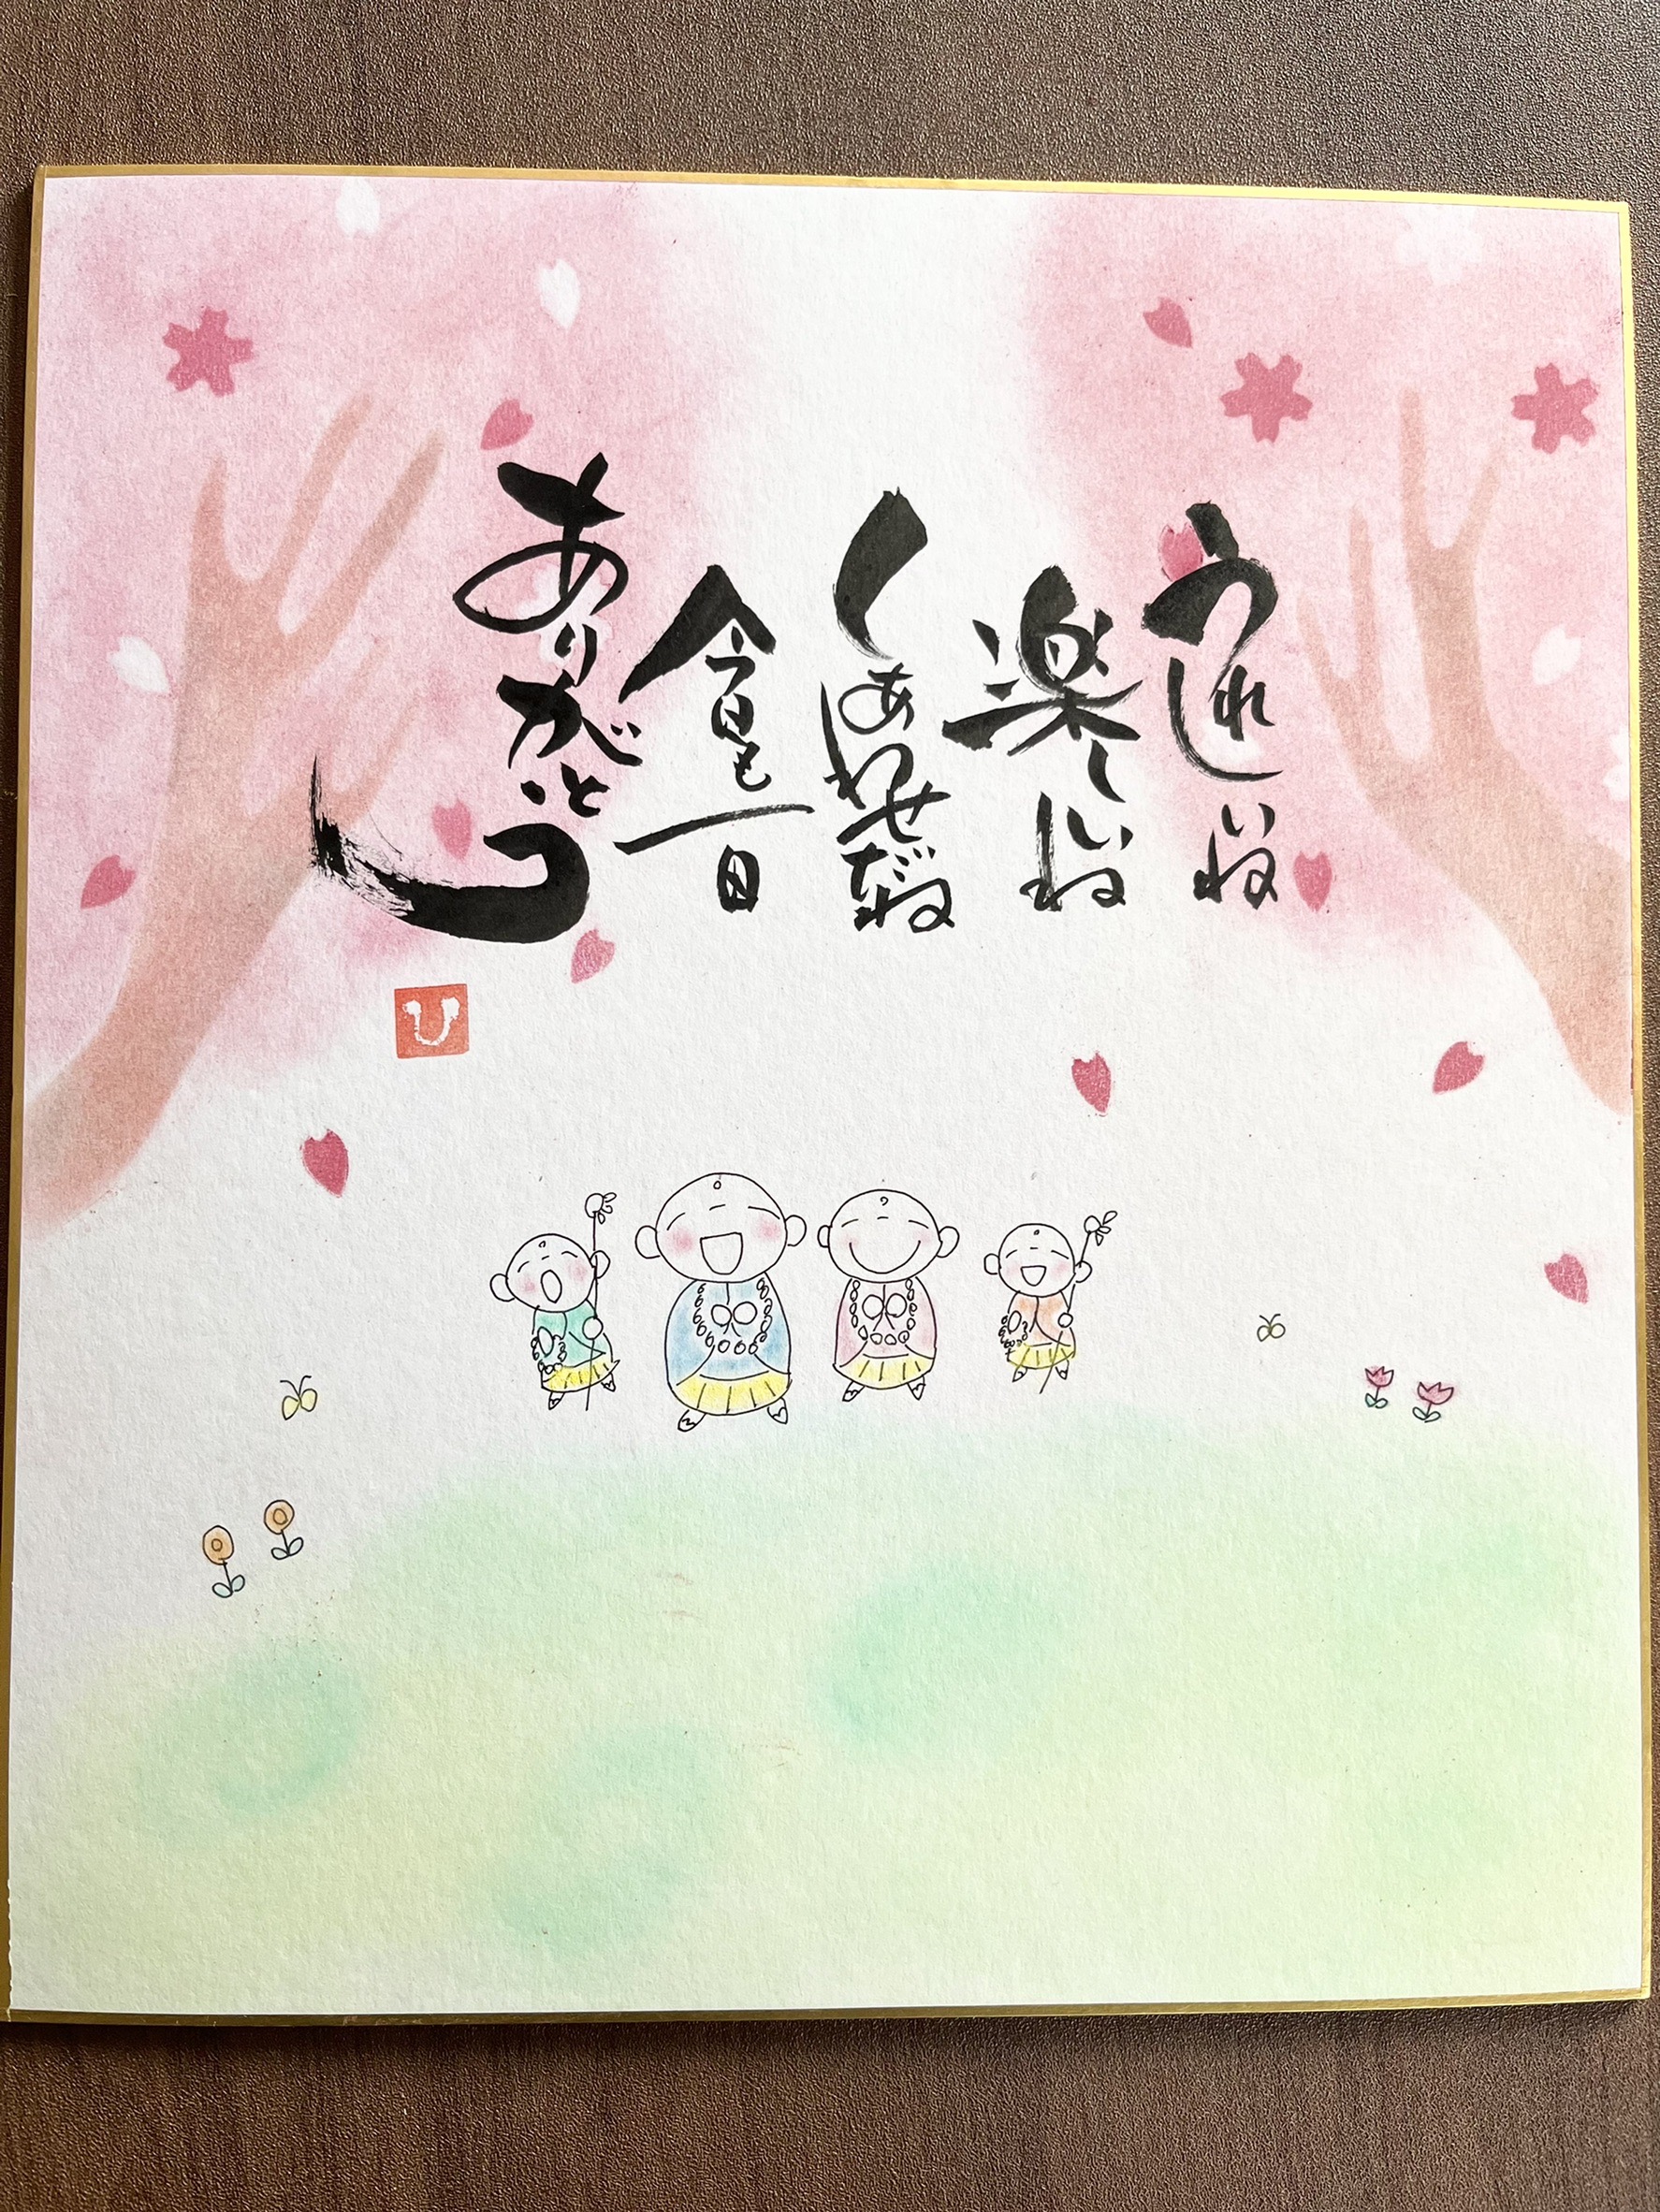 うれしいね
楽しいね
しあわせだね
今日も一日
ありがとう
ひ